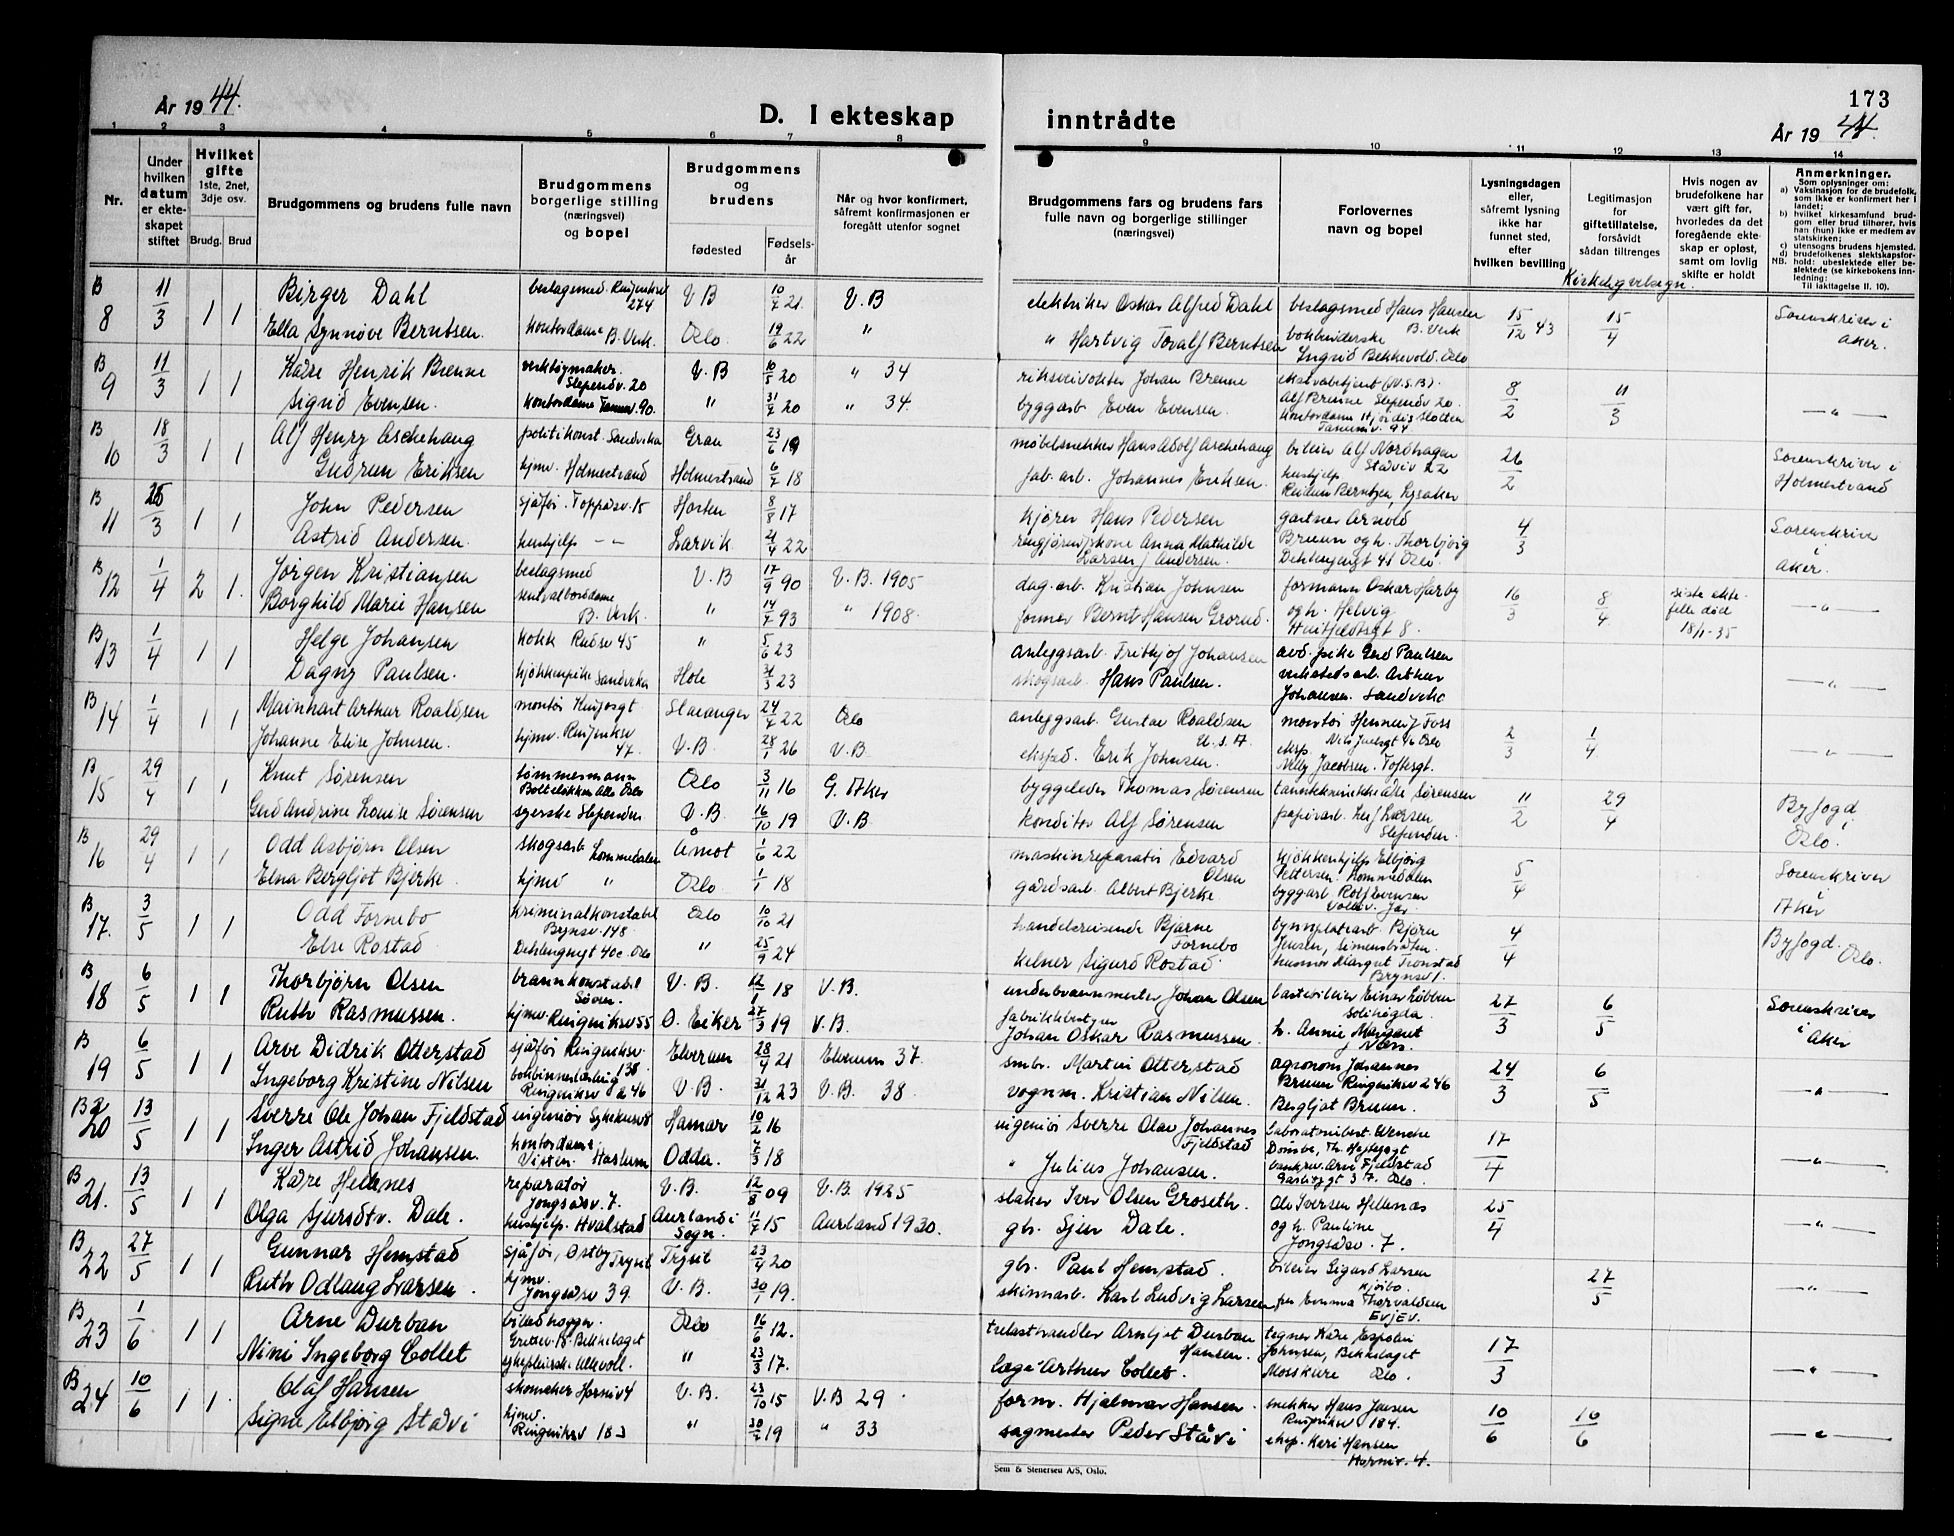 173
År 1944.
D. I ekteskap inntrådte
År 1944.
1 2 3 4 5 6 7 8 9 10 11 12 13 14
Nr.
Under hvilken datum er ekteskapet stiftet
Hvilket gifte 1ste, 2net, 3dje osv.
Brudg. Brud
Brudgommens og brudens fulle navn
Brudgommens borgerlige stilling (næringsvei) og bopel
Brudgommens og brudens
fødested
Fødselsår
Når og hvor konfirmert, såfremt konfirmasjonen er foregått utenfor sognet
Brudgommens fars og brudens fars fulle navn og borgerlige stillinger (næringsvei)
Forlovernes navn og bopel
Lysningsdagen eller, såfremt lysning ikke har funnet sted, efter hvilken bevilling
Legitimasjon for giftetillatelse, forsåvidt sådan tiltrenges
Hvis nogen av brudefolkene har vært gift før, hvorledes da det foregående ekteskap er opløst, samt om lovlig skifte er holdt
Anmerkninger.
Som oplysninger om:
a) Vaksinasjon for de brudefolk, som ikke er konfirmert her i landet;
b) hvilket kirkesamfund brudgom eller brud tilhører, hvis han (hun) ikke er medlem av statskirken;
c) utensogns brudens hjemsted.
d) brudefolkenes slektskapsforhold: ubeslektede eller beslektede (se kirkebokens innledning:
NB.
Til iakttagelse II. 10).
B 8 11/3 1 1 Birger Dahl beslagsmed. 274 V.B 10/7 21 V.B elektriker Oskar Alfred Dahl beslagsmed Hans Hansen B. Verk 15/12 43 15/4 Sorenskriver i Aker.
Ella Synnøve Berntsen. kontordame B. Verk. Oslo 19/6 22 " " Hartvig Toralf Berntsen bokbinderske Ingrid Bekkevold. Oslo
B 9 11/3 1 1 Kåre Henrik Brenne verktøymaker. Slependv. 20 V.B 10/5 20 " 34 Johan Brenne Alf Brenne Slependv 20. 8/2 11/3 — " —
Sigrid Evensen. kontordame Tanumv. 90. " 31/7 20 " 34. byggarb Even Evensen. kontordame Hjørdis Sløtten Tanumv. 94
B 10 18/3 1 1 Alf Henry Aschehaug politikonst. Sandvika Gran 23/6 19 møbelsnekker Hans Adolf Aschehaug bileier Alf Nordhagen 26/2 Sorenskriver i Holmestrand
Gudrun Eriksen hjmv. Holmestrand Holmestrand 6/7 18 fab. arb. Johannes Eriksen. hushjelp Reidun Berntzen, Lysaker
B 11 25/3 1 1 John Pedersen sjåfør. Toppåsv. 15 Horten 8/8 17 kjører Hans Pedersen gartner Arnold 4/3 Sorenskriver i Aker.
Astrid Andersen. hushjelp — " — Larvik. 21/4 22 rengjøringskone Anna Mathilde Larsen / Andersen. Bruun og h. Thorbjørg Dehlengengt 41 Oslo.
B 12 1/4 2 1. Jørgen Kristiansen beslagsmed V.B 17/9 90 V.B. 1905 dag. arb. Kristian Johnsen formann Oskar Harby 16/3 8/4 siste ektefelle død 18/1-35 — " —
Borghild Marie Hansen sentralborddame B. Verk. " 14/7 93 " 1908. former Bernt Hansen Grorud. og h. Helvig. Huitfeldtsgt 8.
B 13 1/4 1 1 Helge Johansen kokk Rudsv 45 " 5/6 23 anleggsarb. Fritjof Johansen Gerd Paulsen — " —
Dagny Paulsen. kjøkkenpike Sandvika Hole 31/3 23 skogsarb. Hans Paulsen. verkstedsarb. Arthur Johansen. Sandvika
B 14 1/4 1 1 Mainhart Arthur Roaldsen montør Stavanger 24/7 22 Oslo anleggsarb. Gustav Roaldsen U.S.A. montør Henning Foss Nils Juelsgt 46 Oslo 2/3 1/4 — " —
Johanne Elise Johnsen. hjmv. 47. V.B. 28/1 26 V.B. eksped. Erik Johnsen. eksp. Nelly Jacobsen. Toftesgt.
B 15 29/4 1 1 Knut Sørensen tømmermann Bolteløkken Alle Oslo Oslo 3/11 16 G. Aker byggeleder Thomas Sørensen tanntekniker Sørensen 11/2 29/4 Byfogd i Oslo.
Gerd Andrine Louise Sørensen syerske Slependen V.B. 16/10 19 V.B konditor Alf Sørensen papirarb. Leif Larsen Slependen.
B 16 29/4 1 1 Odd Asbjørn Olsen skogsarb. Lommedalen Åmot 1/6 22 maskinreparatør Edvard Olsen kjøkkenhjelp Elbjørg Pettersen. Lommedalen 5/4 Sorenskriver i Aker
Elna Bergljot Bjerke. hjmv " Oslo 1/1 18 gårdsarb. Albert Bjerke. byggarb Rolf Evensen Vollsv. Jar.
B 17. 3/5 1 1 Odd Fornebo kriminalkonstabel Brynsv. 148. Oslo 10/10 21 handelsreisende Bjarne Fornebo Bjørn Jensen, 4/4 Byfogd. Oslo.
Else Rostad Dehlengengt 40c. Oslo " 25/9 24 kelner Sigurd Rostad. husmor Margit Tronstad Brynsv 1.
B 18 6/5 1 1 Thorbjørn Olsen brannkonstabel V.B. 12/1 18 V.B. underbrannmester Johan Olsen lastebileier Einar Løbben Solihøgda. 27/3 6/5 Sorenskriver i Aker
Ruth Rasmussen. hjmv. Ringeriksv 55 Ø. Eiker 27/3 19 V.B. fabrikkbestyrer Johan Oskar Rasmussen. h. Annie Margaret Næss.
B 19 6/5 1 1 Arve Didrik Otterstad sjåfør Ringeriksv. 138. Elverum 28/4 21 Elverum 37. smbr. Martin Otterstad agronom Johannes Bruun Ringeriksv 246 24/3 6/5 "
Ingeborg Kristine Nilsen Ringeriksv 246 V.B. 31/12 23 V.B. 38. vognm. Kristian Nilsen. Bergljot Bruun.
B 20 13/5 1 1 Sverre Ole Johan Fjeldstad ingeniør Hamar 10/2 16 ingeniør Sverre Olav Johannes Fjeldstad Wenche 17/4 — " —
Inger Astrid Johansen. kontordame Haslum Odda. 7/3 18 " Julius Johansen. Arne Fjeldstad Oslo.
B 21. 13/5 1 1 Kåre Hellenes reparatør Jongsåsv. 7. V.B. 12/8 09 V.B. 1925 slaker Iver Olsen Groseth. Ole Iversen Hellenes 25/4 "
Olga Sjursdtv. Dale. hushjelp. Hvalstad Aurland i Sogn. 11/7 15 Aurland 1930. gbr. Sjur Dale. og h. Pauline Jongsåsv. 7.
B 22 27/5 1 1 Gunnar Hemstad sjåfør, Østby Trysil Trysil 23/4 20 gbr. Paul Hemstad. bileier Sigurd Larsen Kjørbo. 27/5 "
Ruth Odlaug Larsen. hjmv. Jongsåsv 39. V.B. 30/1 19. skinnarb. Karl Ludvig Larsen frk Emma Thorvaldsen Evje V.
B 23 1/6 1 1 Arne Durban Bekkelaget Oslo 16/6 12. trelasthandler Arnljot Durban Hansen. tegner Kåre Espolin Johnsen, Bekkelaget 17/3 "
Nini Ingeborg Collet sykepleierske Ullevoll. " 23/3 17. læge Arthur Collet. Oslo.
B 24 10/6 1 1. Olaf Hansen skomaker Horniv 4 V.B. 23/10 15 V.B 29 form. Hjalmar Hansen. snekker Hans Jensen Ringeriksv 184. 10/6 10/6 — " —
Signe Elbjørg Stadvi hjmv. Ringeriksv 183 " 30/7 19 " 33 sagmester Peder Stavi eksp. Kari Hansen Horniv. 4.
Kirkelig velsign.
Sem & Stenersen A/S, Oslo.